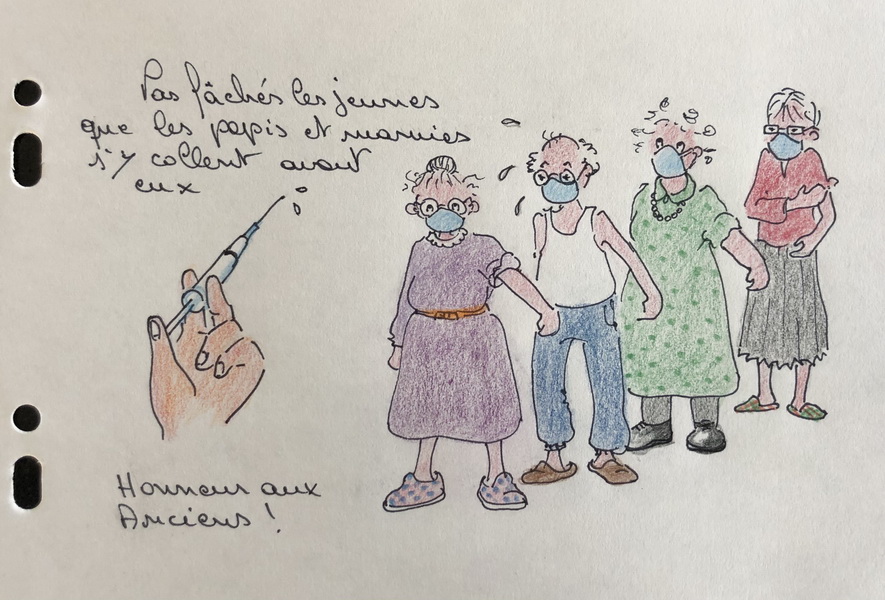 Pas fâchés les jeunes
que les papis et mamies
s'y collent avant
eux
Honneur aux
Anciens !